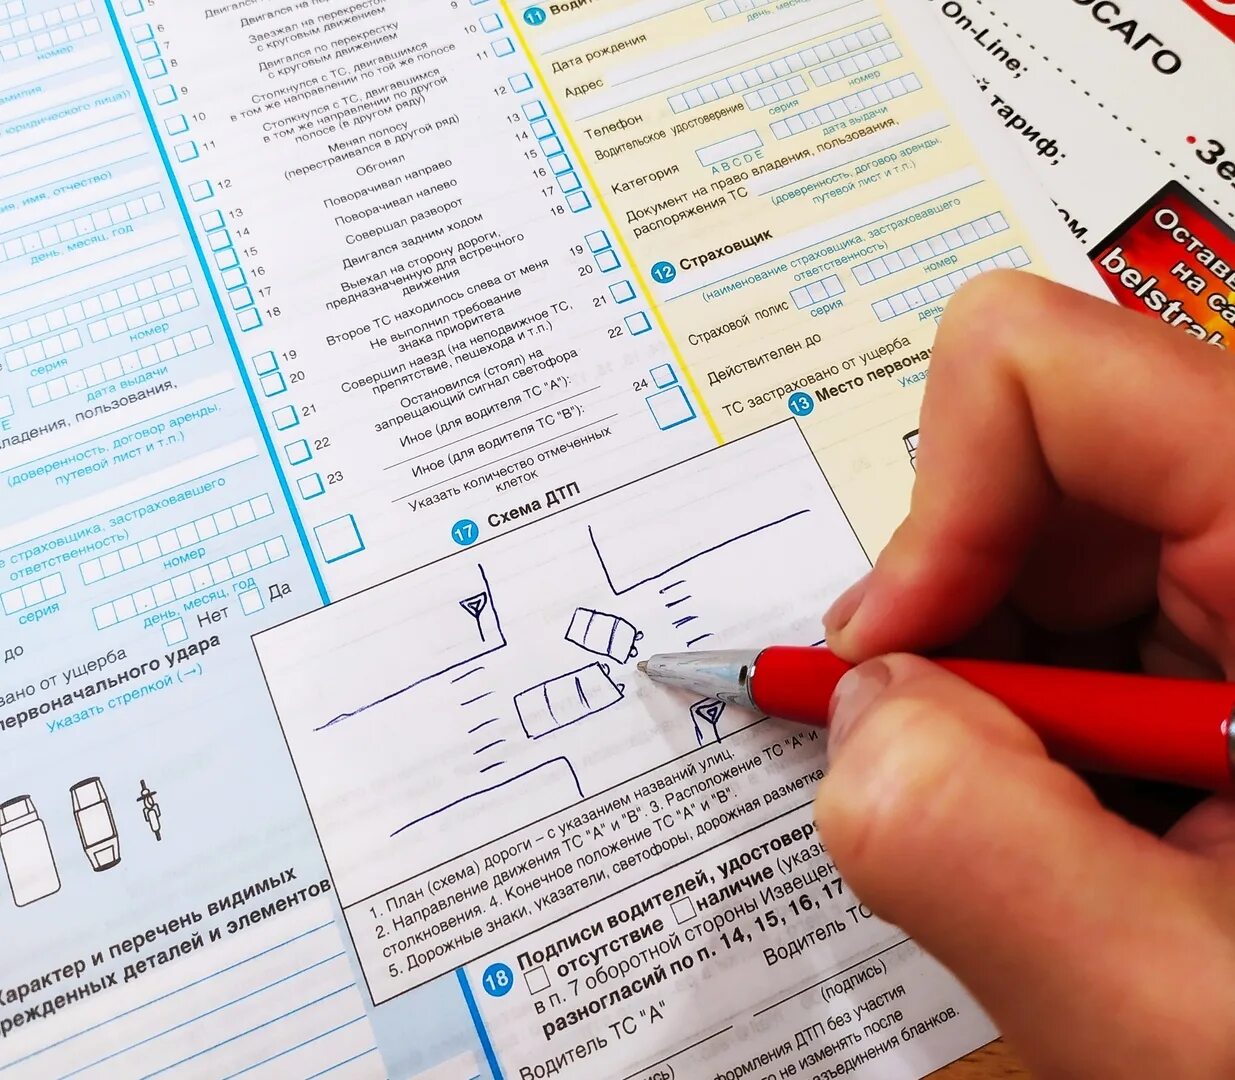 номер
амилия
юридического лица))
ия, имя, отчество)
день, месяц, год
серия
номер
дата выдачи
ладения, пользования,
(доверенность, договор аренды,
путевой лист и т.п.)
е страховщика, застраховавшего
ответственность)
номер
серия
день, месяц, год
до
Нет
Да
вано от ущерба
первоначального удара
Указать стрелкой (→)
Характер и перечень видимых
режденных деталей и элементов
5
6
7
8
9
10
11
12
13
14
15
16
17
18
19
20
21
22
23
Двигался на
Заезжал на перекресток
с круговым движением
Двигался по перекрестку
с круговым движением
Столкнулся с ТС, двигавшимся
в том же направлении по той же полосе
Столкнулся с ТС, двигавшимся
в том же направлении по другой
полосе (в другом ряду)
Менял полосу
(перестраивался в другой ряд)
Обгонял
Поворачивал направо
Поворачивал налево
Совершал разворот
Двигался задним ходом
Выехал на сторону дороги,
предназначенную для встречного
движения
Второе ТС находилось слева от меня
Не выполнил требование
знака приоритета
Совершил наезд (на неподвижное ТС,
препятствие, пешехода и т.п.)
Остановился (стоял) на
запрещающий сигнал светофора
Иное (для водителя ТС "А"):
Иное (для водителя ТС "В"):
Указать количество отмеченных
клеток
9
10
11
12
13
14
15
16
17
18
19
20
21
22
24
11 Водит
день, месяц,
Дата рождения
Адрес
Телефон
Водительское удостоверение
серия
номер
Категория
A B C D E
дата выдачи
Документ на право владения, пользования,
распоряжения ТС
(доверенность, договор аренды,
путевой лист и т.п.)
12 Страховщик
(наименование страховщика, застраховавшего
ответственность)
Страховой полис
серия
номер
Действителен до
ТС застраховано от ущерба
13 Место первонач
Указ
17 Схема ДТП
1. План (схема) дороги – с указанием названий улиц.
2. Направление движения ТС "А" и "В". 3. Расположение ТС "А" и
столкновения. 4. Конечное положение ТС "А" и "В".
5. Дорожные знаки, указатели, светофоры, дорожная разметка
18 Подписи водителей, удостовер
отсутствие
наличие (указы
в п. 7 оборотной стороны Извещен
разногласий по п. 14, 15, 16, 17
Водитель ТС "А"
Водитель ТС
(подпись)
оформления ДТП без участия
го не изменять после
азъединения бланков.
ОСАГО
On-Line;
й тариф;
ом.
• Зе
Оставь
на са
belstrah